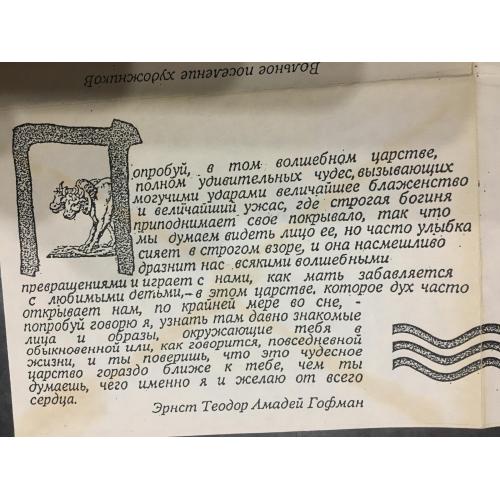 Вольное поселение художников
Попробуй, в том волшебном царстве,
полном удивительных чудес, вызывающих
могучими ударами величайшее блаженство
и величайший ужас, где строгая богиня
приподнимает свое покрывало, так что
мы думаем видеть лицо ее, но часто улыбка
сияет в строгом взоре, и она насмешливо
дразнит нас всякими волшебными
превращениями и играет с нами, как мать забавляется
с любимыми детьми,- в этом царстве, которое дух часто
открывает нам, по крайней мере во сне, -
попробуй говорю я, узнать там давно знакомые
лица и образы, окружающие тебя в
обыкновенной или, как говорится, повседневной
жизни, и ты поверишь, что это чудесное
царство гораздо ближе к тебе, чем ты
думаешь, чего именно я и желаю от всего
сердца.
Эрнст Теодор Амадей Гофман